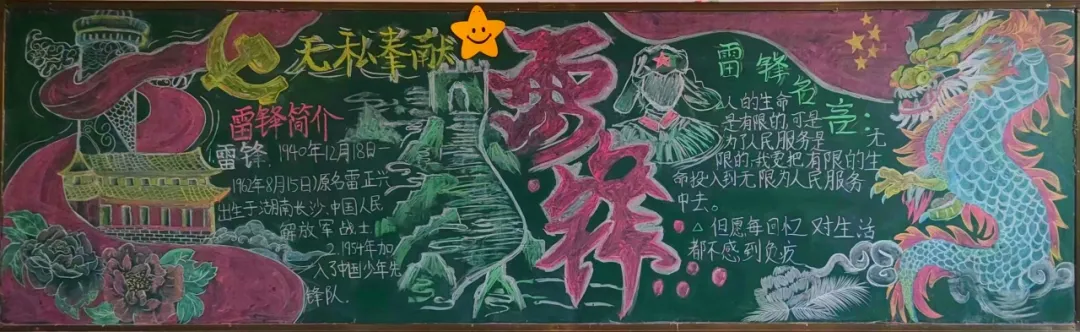 无私奉献
雷锋简介
雷锋,1940年12月18日一
1962年8月15日)原名雷正兴
出生于湖南长沙.中国人民
解放军战士
2.1954年加
入了中国少年先
锋队.
雷锋
雷锋名言:
人的生命
是有限的,可是
为人民服务是无
限的,我要把有限的生
命投入到无限为人民服务
中去。
△但愿每回忆对生活
都不感到负疚